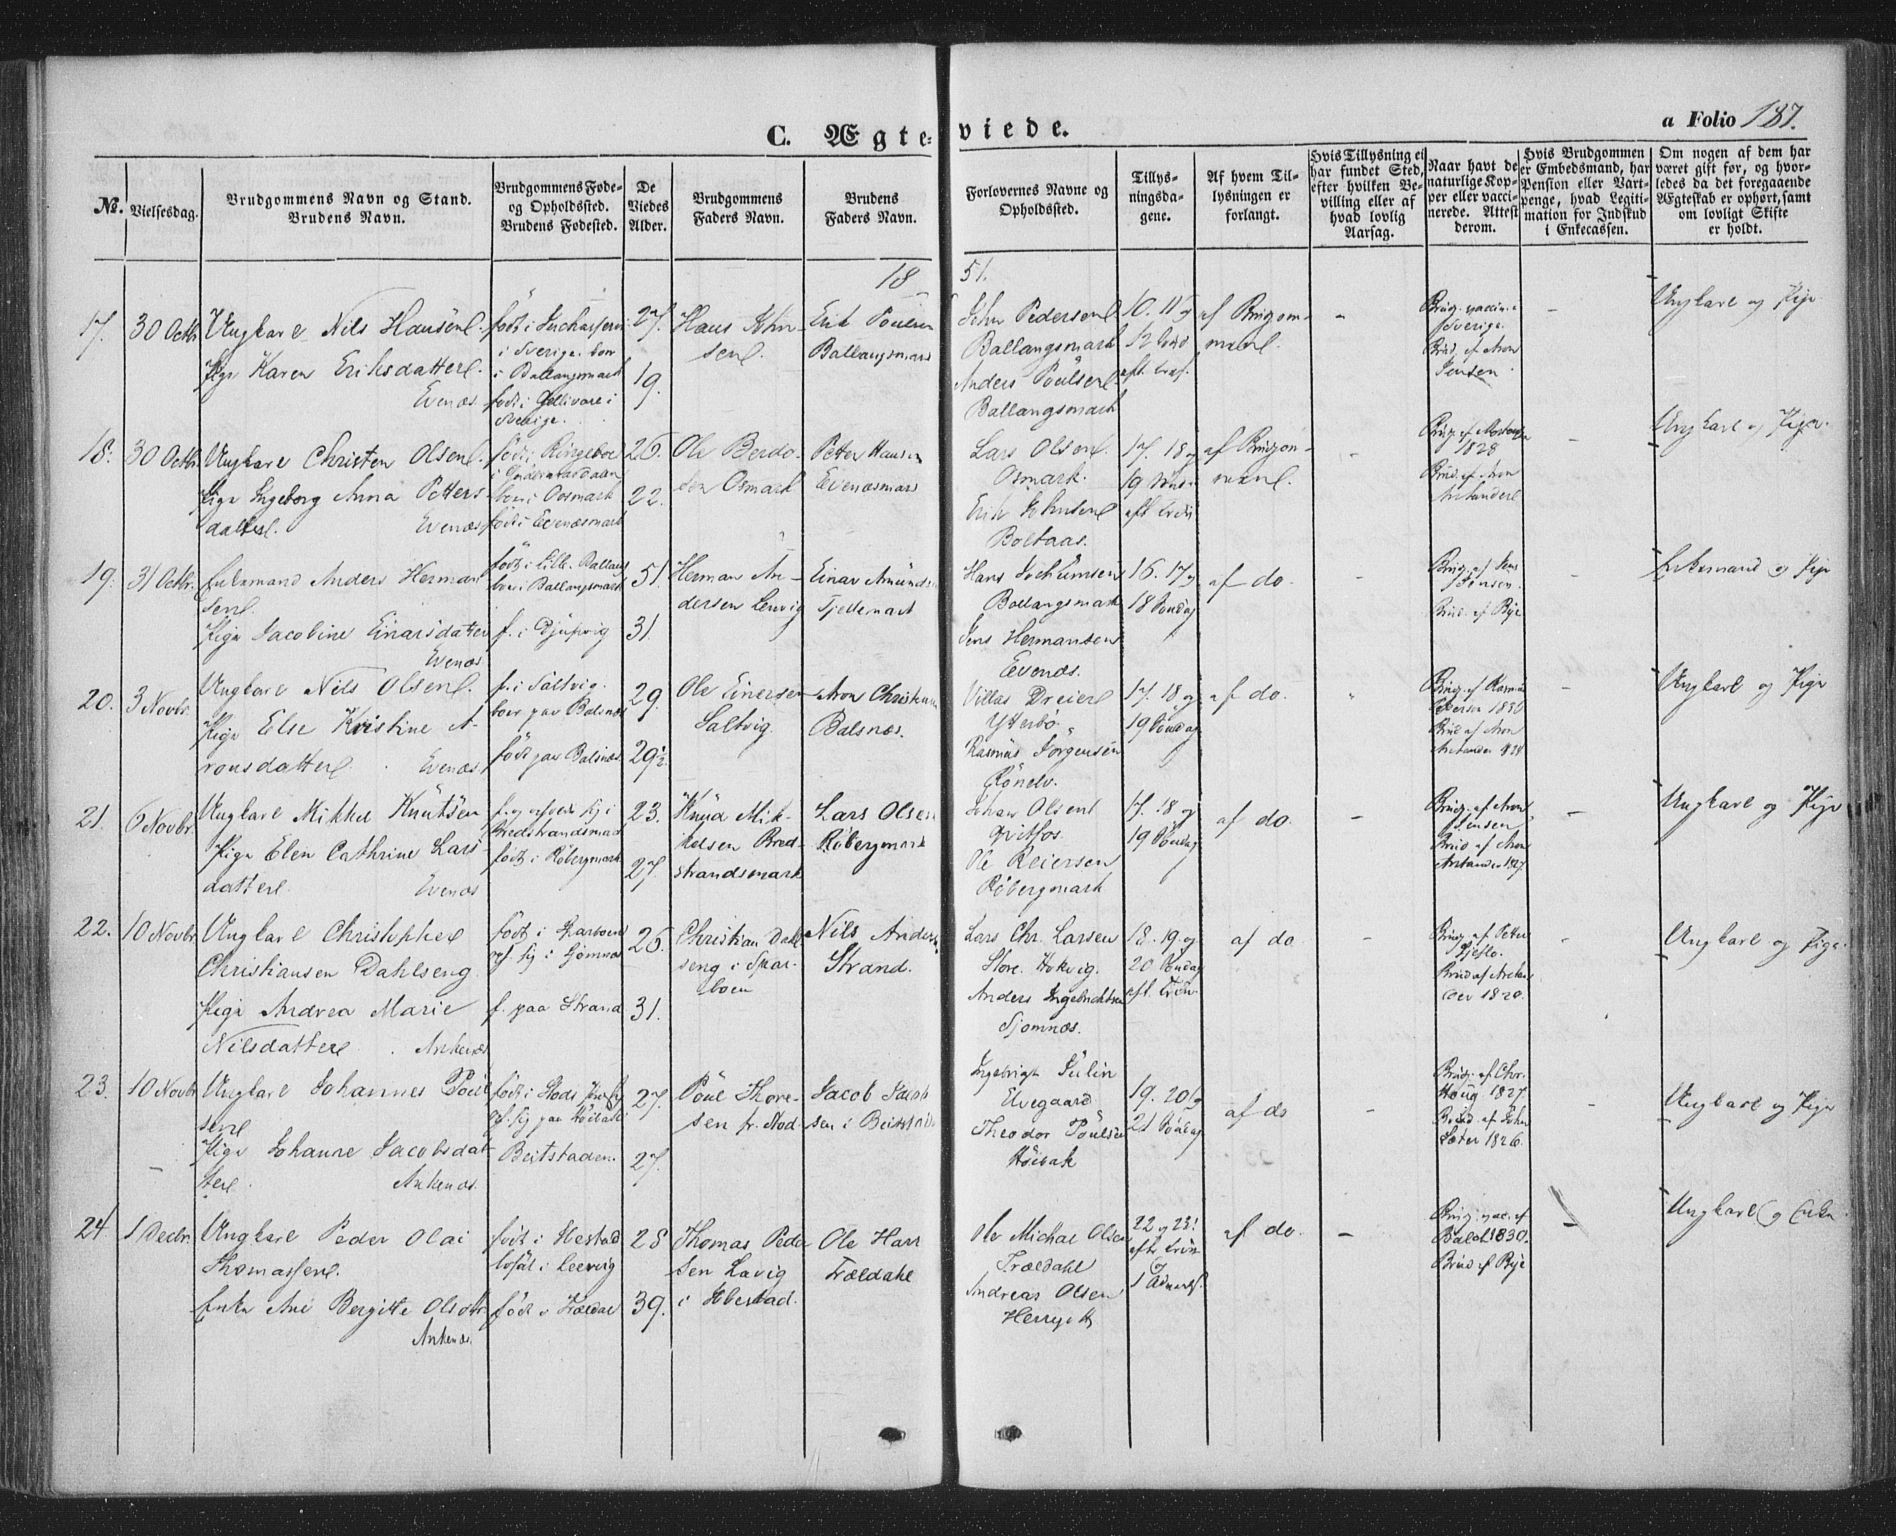 C. Ægte- viede.
a Folio 187.
№.
Vielsesdag.
Brudgommens Navn og Stand.
Brudens Navn.
Brudgommens Føde-
og Opholdssted.
Brudens Fødested.
De
Viedes
Alder.
Brudgommens
Faders Navn.
Brudens
Faders Navn.
Forlovernes Navne og
Opholdssted.
Tillys-
ningsda-
gene.
Af hvem Til-
lysningen er
forlangt.
Hvis Tillysning ei
har fundet Sted,
efter hvilken Be-
villing eller af
hvad lovlig
Aarsag.
Naar havt de
naturlige Kop-
per eller vacci-
nerede. Attest
derom.
Hvis Brudgommen
er Embedsmand, har
Pension eller Vart-
penge, hvad Legiti-
mation for Indskud
i Enkecassen.
Om nogen af dem har
været gift før, og hvor-
ledes da det foregaaende
Ægteskab er ophørt, samt
om lovligt Skifte
er holdt.
18 51.
17. 30 Octbr.
Ungkarl Nils Hansen.
Pige Karen Eriksdatter.
Evenæs
født i
i Sverige. boer
i Ballangsmark
født i Gellivare i
Sverige.
27.
19.
Hans John-
sen.
Erik Poulsen
Ballangsmark
John Pedersen
Ballangsmark
Anders Poulsen
Ballangsmark
10. 11 og
12
af Brudgom-
men.
-
Brudg. vaccin. i
Sverige.
Brud. af Aron
Jensen
-
Ungkarl og Pige
18. 30 Octbr.
Ungkarl Christen Olsen.
Pige Ingeborg Anna Petters-
datter. Evenæs
født i Ringeboe
i Gudbrandsdalen
boer i Osmark
født i Evenæsmark
26.
22.
Ole Berdo-
sen Osmark
Petter Hansen
Evenæsmark
Lars Olsen
Osmark.
Erik Johnsen
Boltaas.
17. 18 og
19 Sønd.
eft. Trin.
af Brudgom-
men.
-
1828
Brud. af Aron
Arctander
-
Ungkarl og Pige.
19. 31 Octbr.
Enkemand Anders Herman-
sen.
Pige Jacobine Einarsdatter
Evenæs
født i Lille Ballang
boer i Ballangsmark
f. i Djupvig
51.
31.
Herman An-
dersen Lervig
Einar Amunds.
Tjeldemark
Hans Jochumsen
Ballangsmark
Jens Hermansen
Evenæs.
16. 17 og
18 Søndag
af do.
-
Brudg. af Jens
Jensen
Brud. af Bye
-
Enkemand og Pige
20. 3 Novbr.
Ungkarl Nils Olsen.
Pige Else Kristine A-
ronsdatter. Evenæs
f. i Saltvig.
boer paa Balsnæs
født paa Balsnæs
29.
29½
Ole Einersen
Saltvig.
Aron Christians.
Balsnæs.
Villas Dreier
Ytterbø.
Rasmus Jörgensen
17. 18 og
19 Søndag
af do.
Brudg. af Rasmus
Brud af Aron
Arctander
-
Ungkarl og Pige
21. 6 Novbr.
Ungkarl Mikkel Knutsen
Pige Elen Cathrine Lars-
datter. Evenæs
f. og opholder sig i
Bredstrandsmark
født i Røbergmark
23.
27.
Knud Mik-
kelsen Bred-
strandsmark
Lars Olsen
Røbergmark
Johan Olsen
Ole Reiersen
Røbergmark
17. 18 og
19 Søndag
af do.
-
Brudg. af Aron
Jensen
Brud af Aron
Arctander 1827.
-
Ungkarl og Pige
22. 10 Novbr.
Ungkarl Christopher
Christiansen Dahlseng.
Pige Andrea Marie
Nilsdatter. Ankenæs
født i Sparboen
op. sig i Sjomnæs
f. paa Strand
26.
31.
Christian Dahl-
seng i Spar-
boen
Nils Anders.
Strand.
Lars Chr. Larsen
Store. Hokvig.
Anders Ingebrichtsen
Sjomnæs.
18. 19. og
20 Søndag
eft. Trin.
af do
-
Brudg. af Petter
Brud af Arctan-
der 1820.
-
Ungkarl og Pige.
23. 10 Novbr
Ungkarl Johannes Poul-
sen
Pige Johanne Jacobsdat-
ter. Ankenæs.
op. sig paa
Beitstaden.
27.
27.
Poul Thore-
sen fr. Stod
Jacob Jacob-
sen i Beitstad
Ingebrigt Julin
Elvegaard
Theodor Poulsen
Høibak
19. 20 og
21 Søndag
af do
-
Brudg. af Chr.
Houg 1827.
Brud. af John
Sæter 1826.
-
Ungkarl og Pige
24 1 Decbr.
Ungkarl Peder Olai
Thomassen.
Enke Ane Bergitte Olsdtr
Ankenæs.
født i Ibestad
bosat i Leervig
født i Trældal
28
39.
Thomas Peder-
sen Lavig
i Ibestad.
Ole Hans
Trældahl
Ole Michal Olsen
Trældahl
Andreas Olsen
22 og 23.
efter Trin.
og
1 Advents.
af do.
-
Brudg. vac. af
Balch 1830.
Brud af Bye
-
Ungkarl og Enke.